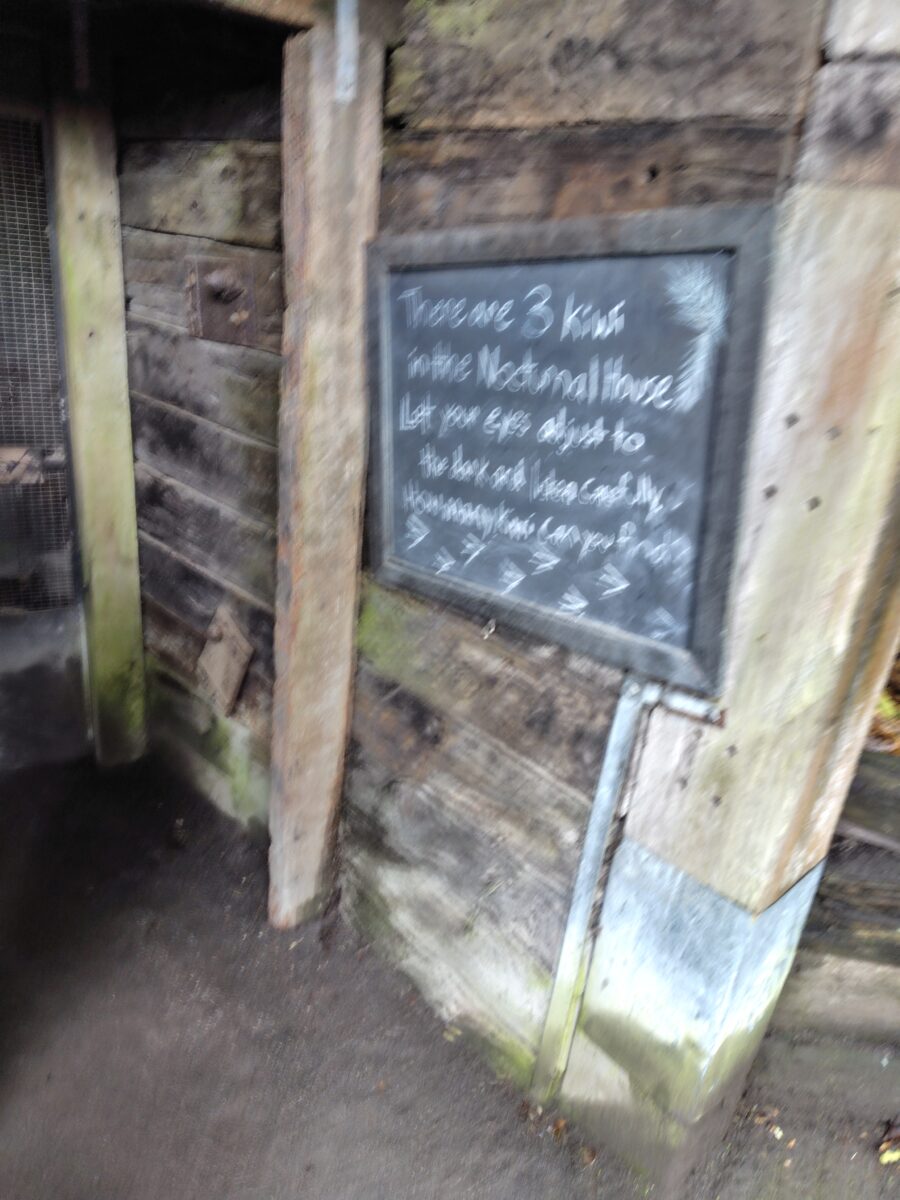 There are 3 kiwi
in the Nocturnal House
Let your eyes adjust to
the dark and listen carefully.
How many kiwi can you find?